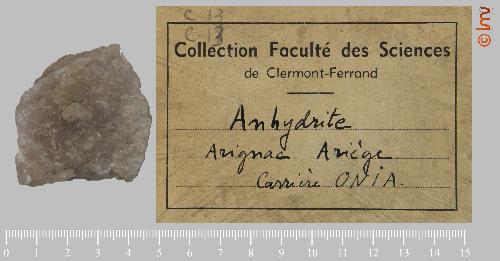 C 13
C-13
Collection Faculté des Sciences
de Clermont-Ferrand
Anhydrite
Arignac Ariège
Carrière ONIA.
© lmv
0 1 2 3 4 5 6 7 8 9 10 11 12 13 14 15